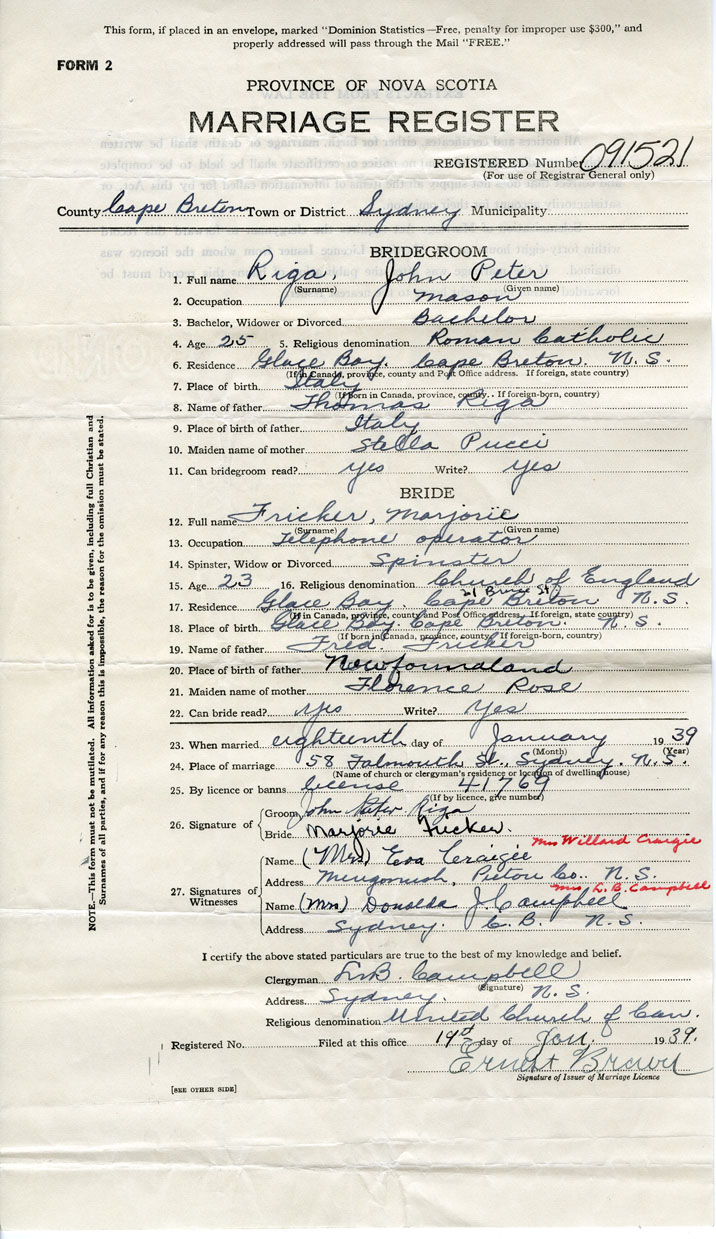 This form, if placed in an envelope, marked "Dominion Statistics—Free, penalty for improper use $300," and
properly addressed will pass through the Mail "FREE."
FORM 2
PROVINCE OF NOVA SCOTIA
MARRIAGE REGISTER
REGISTERED Number 091521
(For use of Registrar General only)
County Cape Breton Town or District Sydney Municipality
BRIDEGROOM
1. Full name Riga, John Peter
(Surname) (Given name)
2. Occupation mason
3. Bachelor, Widower or Divorced Bachelor
4. Age 25 5. Religious denomination Roman Catholic
6. Residence Glace Bay. Cape Breton. N.S.
(If in Canada, province, county and Post Office address. If foreign, state country)
7. Place of birth Italy
(If born in Canada, province, county. If foreign-born, country)
8. Name of father Thomas Riga
9. Place of birth of father Italy
10. Maiden name of mother Stella Pucci
11. Can bridegroom read? yes Write? yes
BRIDE
12. Full name Fricker, Marjorie
(Surname) (Given name)
13. Occupation Telephone operator
14. Spinster, Widow or Divorced Spinster
15. Age 23 16. Religious denomination Church of England
21 St
17. Residence Glace Bay. Cape Breton N.S.
(If in Canada, province, county and Post Office address. If foreign, state country)
18. Place of birth Glace Bay. Cape Breton. N.S.
(If born in Canada, province, county If foreign-born, country)
19. Name of father Fred. Fricker
20. Place of birth of father Newfoundland
21. Maiden name of mother Florence Rose
22. Can bride read? yes Write? Yes
23. When married eighteenth day of January 1939
(Month) (Year)
24. Place of marriage 58 Falmouth St., Sydney. N.S.
(Name of church or clergyman's residence or location of dwelling house)
25. By licence or banns license 41769
(If by licence, give number)
26. Signature of
Groom John Peter Riga
Bride Marjorie Fricker.
Mrs Willard Craigie
27. Signatures of Witnesses
Name (Mrs) Eva Craigie
Address Merigomish, Pictou Co. N.S.
Mrs. L.B. Campbell
Name (Mrs) Donalda J. Campbell
Address Sydney. C.B. N.S.
I certify the above stated particulars are true to the best of my knowledge and belief.
Clergyman L.B. Campbell
(Signature)
Address Sydney. N.S.
Religious denomination United Church of Can.
Registered No. Filed at this office 19th day of Jan. 1939.
Ernest Brown
Signature of Issuer of Marriage Licence
[SEE OTHER SIDE]
NOTE.—This form must not be mutilated. All information asked for is to be given, including full Christian and
Surnames of all parties, and if for any reason this is impossible, the reason for the omission must be stated.